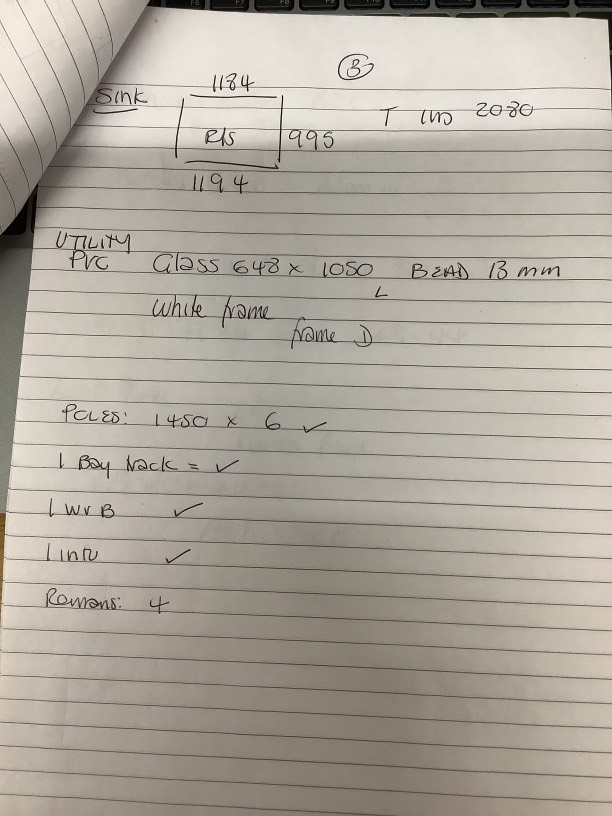 3
1184
Sink
T IND 2080
R/S
995
1194
UTILITY
PVC Glass 648 x 1050 BEAD 13 mm
L
White frame
frame D
POLES: 1450 x 6 ✓
1 Bay track = ✓
1 WVB ✓
1 intu ✓
Romans: 4